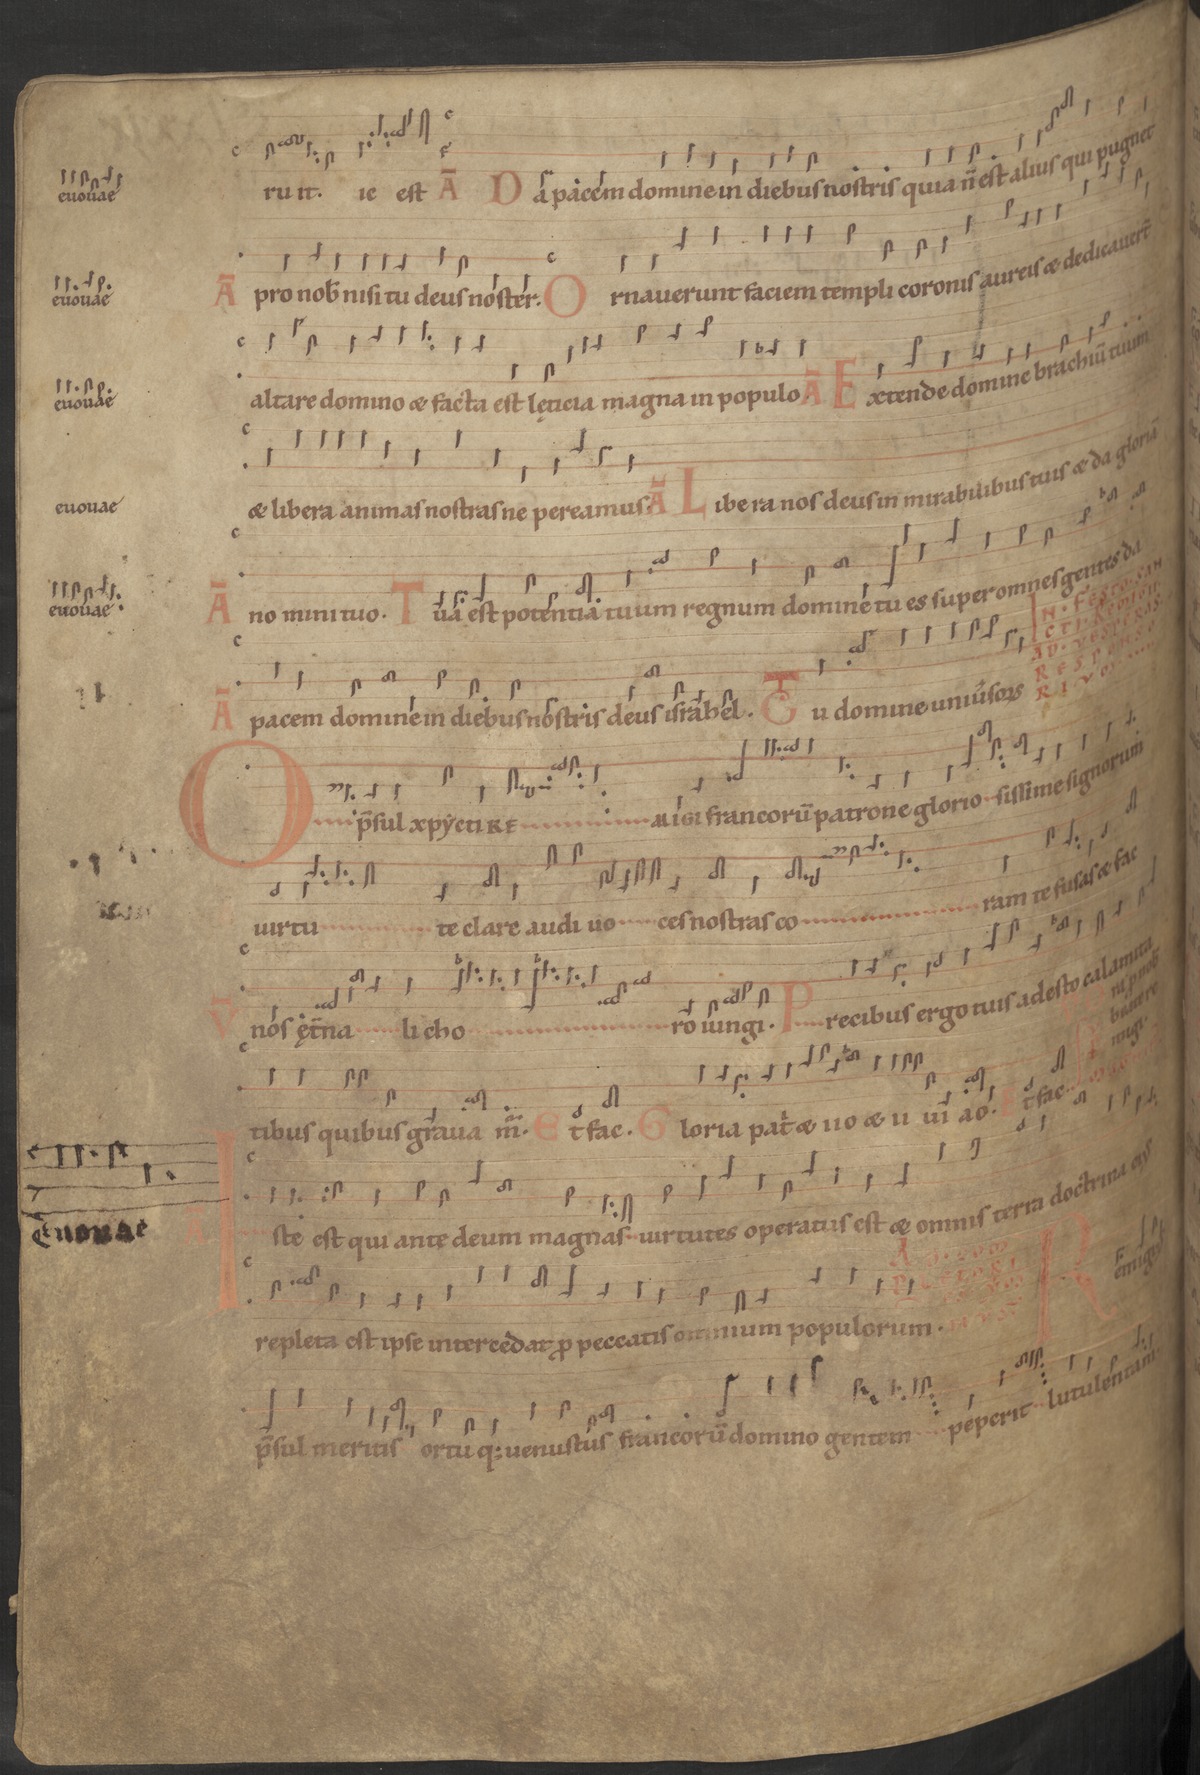 euouae
ru it. ie est Ā Da pacem domine in diebus nostris quia n̄ est alius qui pugnet
euouae
Ā pro nob̄ nisi tu deus noster. Ornauerunt faciem templi coronis aureis & dedicauer̄t
euouae
altare domino & facta est lęticia magna in populo Ā Extende domine brachiū tuum
euouae
& libera animas nostras ne pereamus. Ā Libera nos deus in mirabilibus tuis & da gloriā
euouae
Ā nomini tuo. Tua est potentia tuum regnum domine tu es super omnes gentes da
IN FESTO SAN
CTI REMIGII
AD VESPERAS
Ā pacem domine in diebus nostris deus israhel. Tu domine uniūsoꝝ
O p̄sul xp̄ycti RE MIGI francorū patrone glorio sissime signorum
uirtu te clare audi uo ces nostras co ram te fusas & fac
V̄ nos ęt̄na li cho ro iungi. Precibus ergo tuis adesto calamita
tibus quibus graua m̄. Et fac. Gloria pat̄ & uo & u ui ao. Et fac.
Euouae
Ā Iste est qui ante deum magnas uirtutes operatus est & omnis terra doctrina eiꝰ
repleta est ipse intercedat ꝓ peccatis omnium populorum. R emigiꝰ
p̄sul meritis ortu q; uenustus francorū domino gentem peperit lutulentam